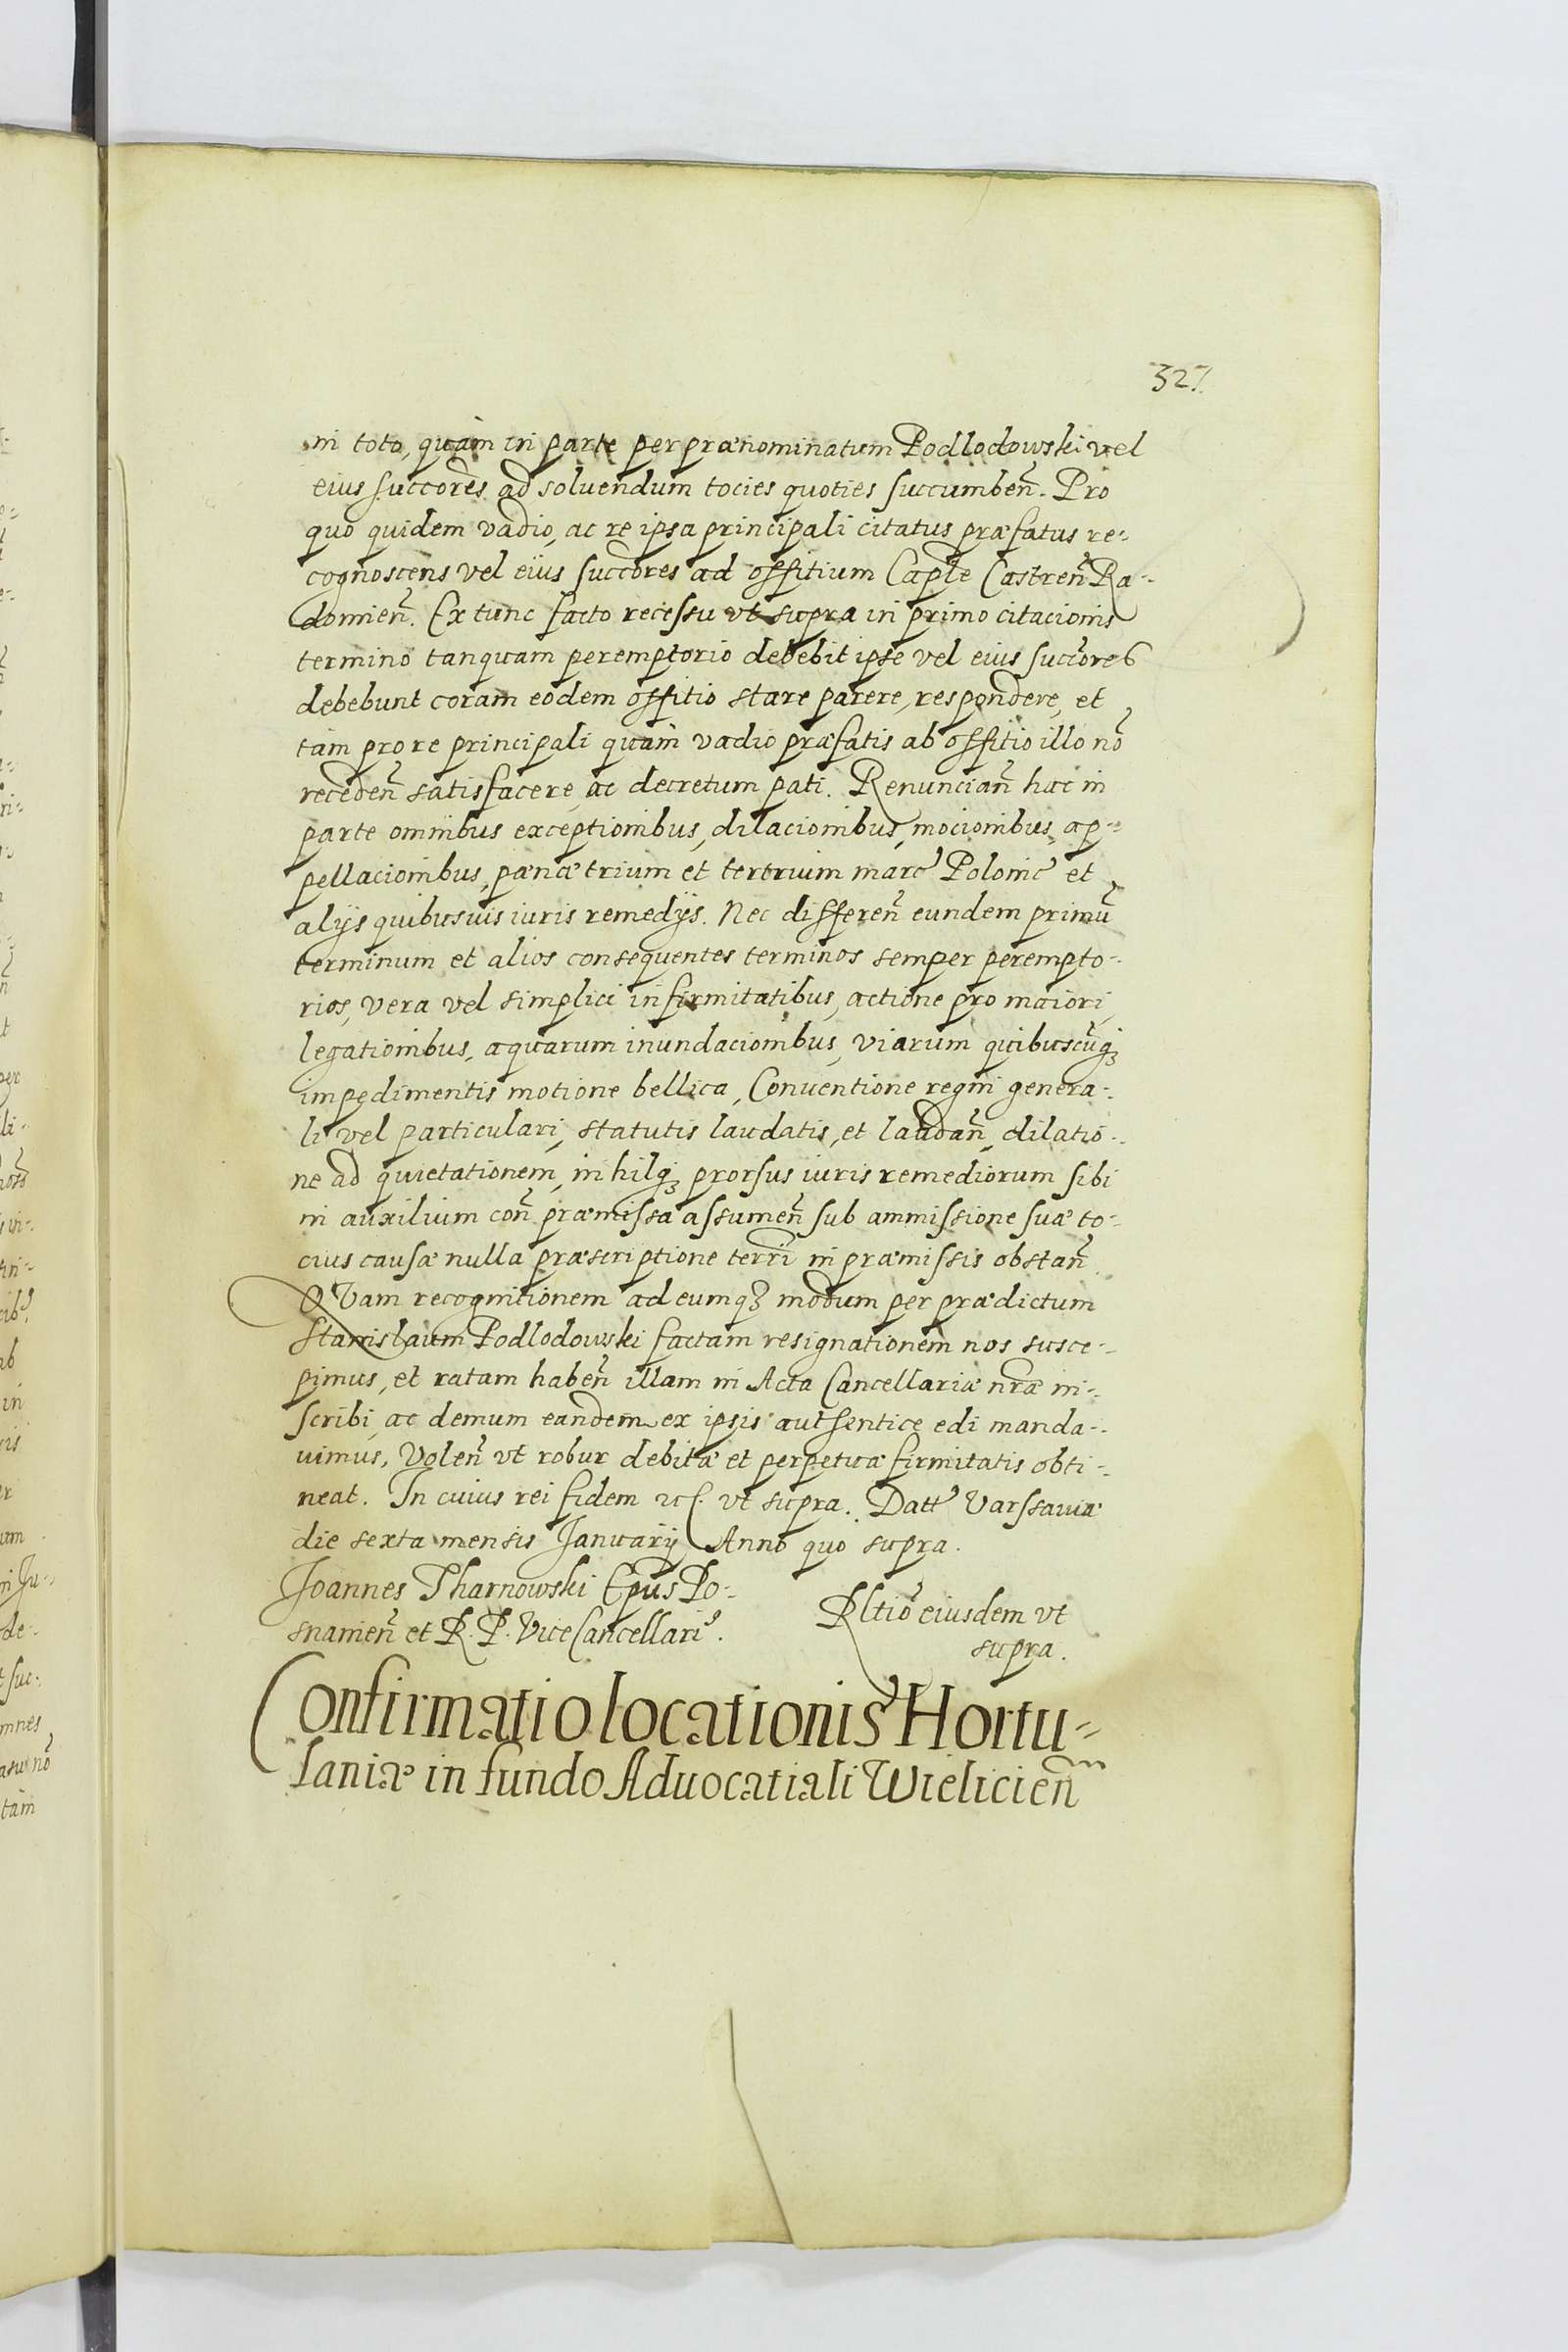 327.
in toto, quam in parte per prænominatum Podlodowski vel
eius succores ad soluendum tocies quoties succumbeñ. Pro
quo quidem vadio, ac re ipsa principali citatus præfatus re-
cognoscens vel eiius succores ad offitium Caple Castreñ Ra-
domieñ. Ex tunc facto recessu vt supra in primo citacionis
termino tanquam peremptorio debebit ipse vel eius succores
debebunt coram eodem offitio stare parere, respondere, et
tam pro re principali quam vadio præfatis ab offitio illo nõ
recedeñ satisfacere, ac decretum pati. Renunciañ hac in
parte omnibus exceptionibus, dilacionibus, mocionibus, ap-
pellacionibus, pænæ trium et tertrium marc Polonic et
alijs quibusuis iuris remedijs. Nec differeñ eundem primũ
terminum et alios consequentes terminos semper perempto-
rios, vera vel simplici infirmitatibus, actione pro maiori,
legationibus, aquarum inundacionibus, viarum quibuscũqȝ
impedimentis motione bellica, Conuentione regni genera-
li vel particulari, statutis laudatis, et laudañ, dilatio-
ne ad quietationem, nihilqȝ prorsus iuris remediorum sibi
in auxilium coñ præmissa assumeñ sub ammissione suæ to-
cius causæ nulla præscriptione terrĩ in præmissis obstañ
QVam recognitionem ad eumqȝ modum per prædictum
Stanislaum Podlodowski factam resignationem nos susce-
pimus, et ratam habeñ illam in Acta Cancellariæ nræ in-
scribi, ac demum eandem ex ipsis authentice edi manda-
uimus, Voleñ vt robur debitæ et perpetuæ firmitatis obti-
neat. In cuius rei fidem etc. vt supra. Datt Varssauiæ
die sexta mensis Januarij Anno quo supra.
Joannes Tharnowski Epus Po-
snanieñ et R. P. ViceCancellari9.
Rltio eiusdem vt
supra.
Confirmatio locationis Hortu-
laniæ in fundo Aduocatiali Wielicieñ